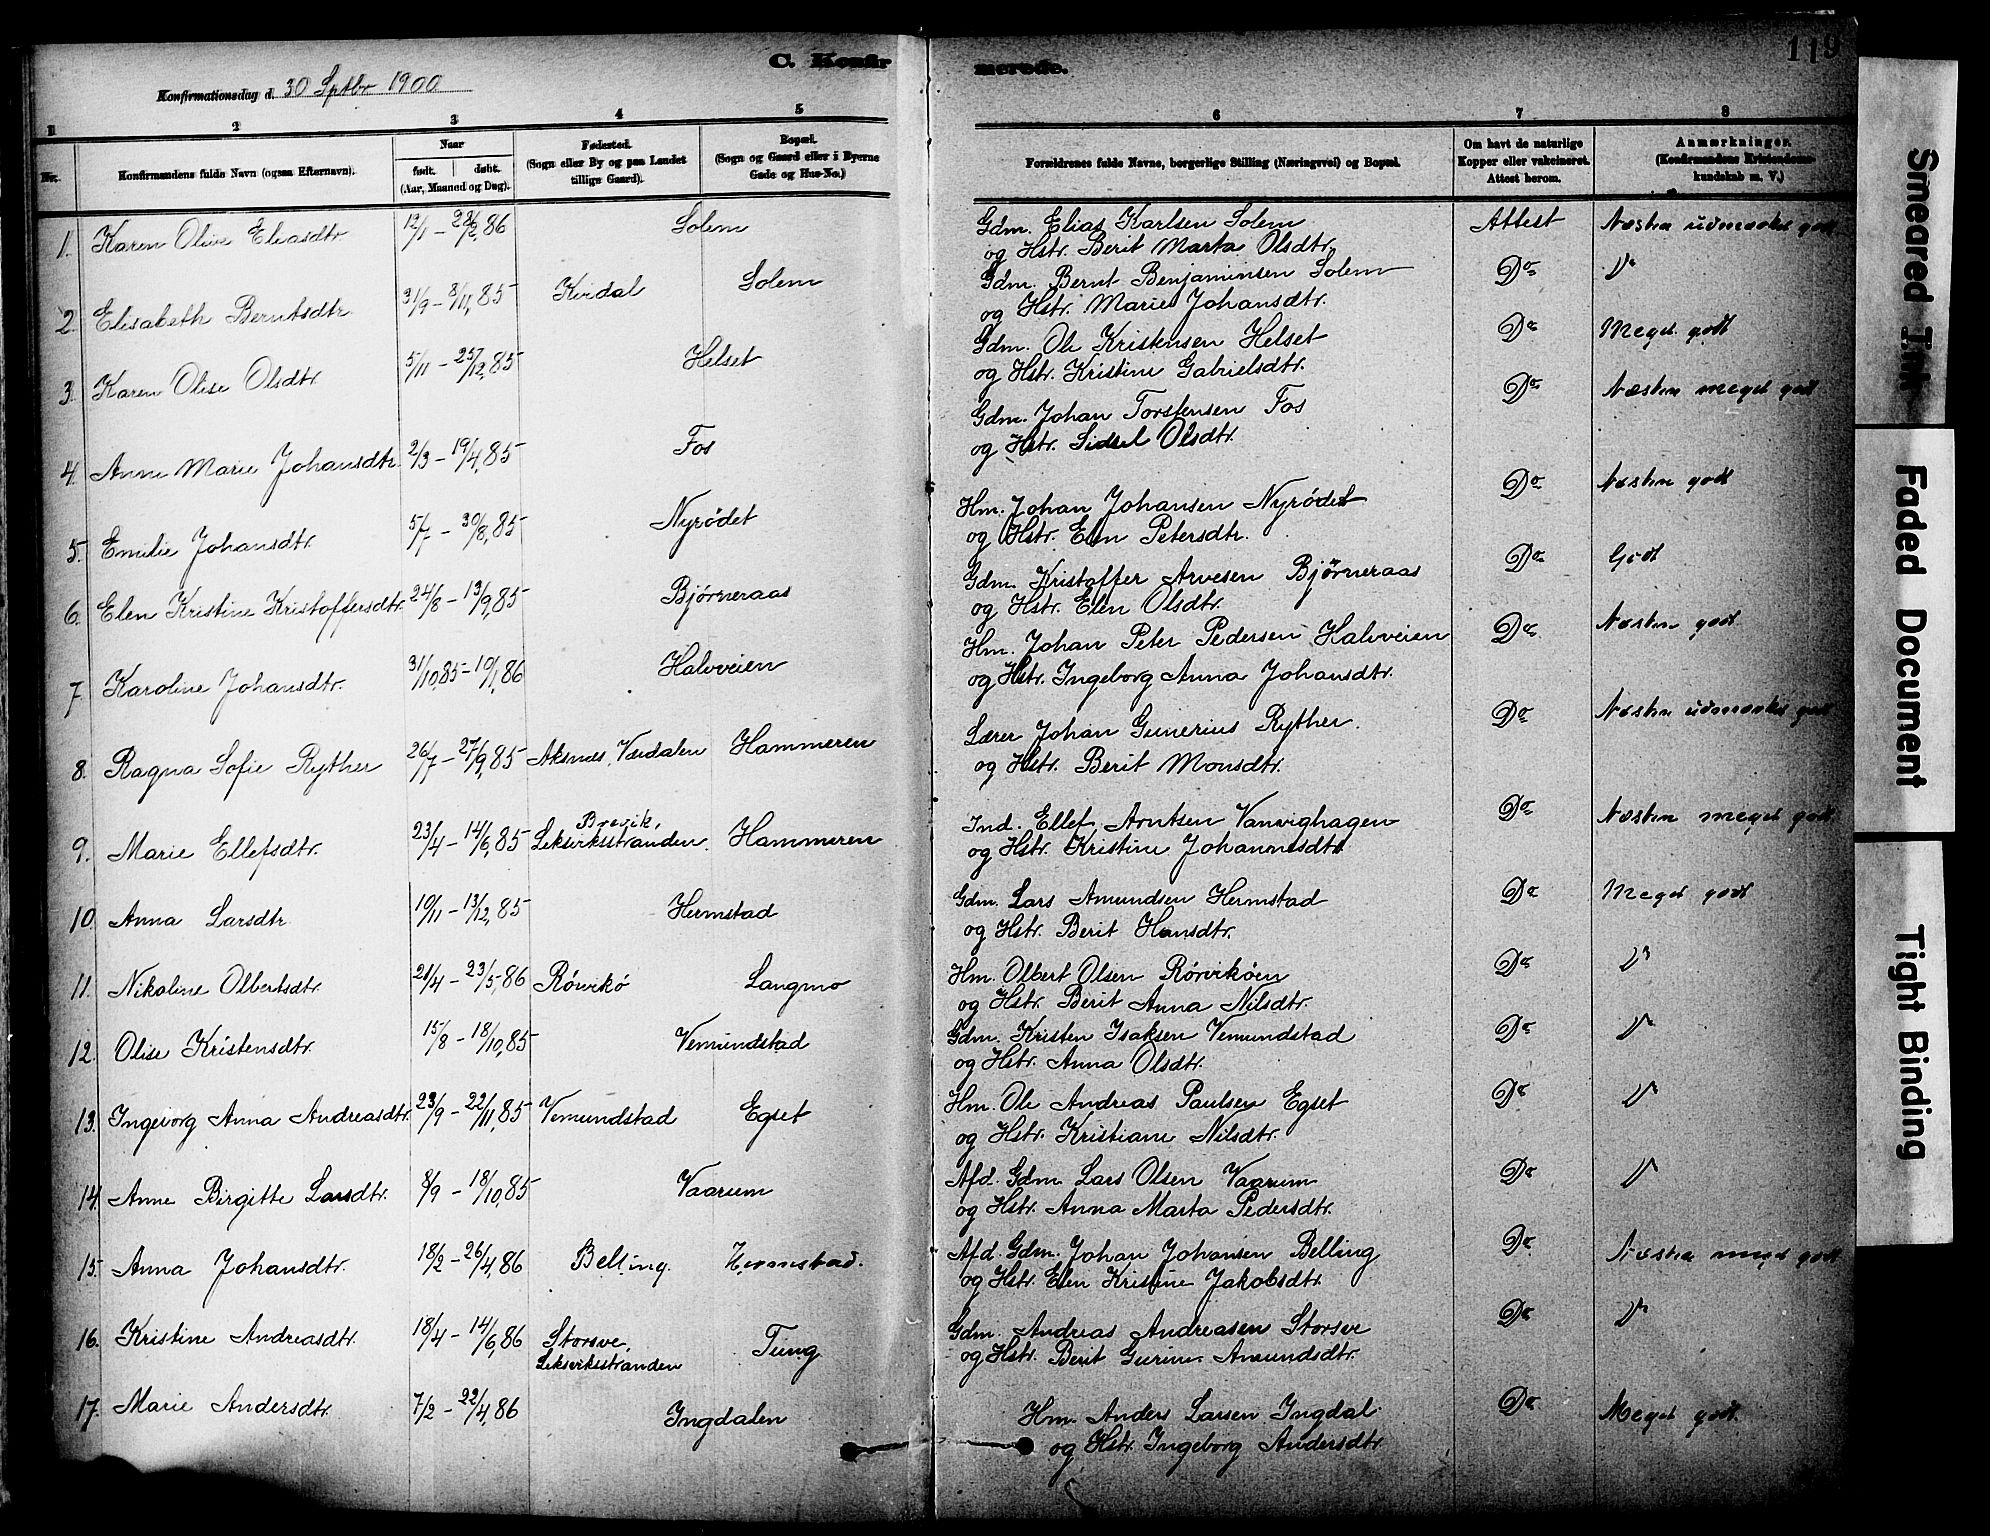 C. Konfir merede. 119
Konfirmationsdag d. 30 Sptbr 1900
1 2 3 4 5 6 7 8
Nr. Konfirmandens fulde Navn (ogsaa Efternavn). Naar født. døbt. (Aar, Maaned og Dag). Fødested. (Sogn eller By og paa Landet tillige Gaard). Bopæl. (Sogn og Gaard eller i Byerne Gade og Hus-No.) Forældrenes fulde Navne, borgerlige Stilling (Næringsvei) og Bopæl. Om havt de naturlige Kopper eller vakcineret. Attest herom. Anmærkninger. (Konfirmandens Kristendomskundskab m. V.)
1. Karen Oline Eliasdtr. 12/1 – 28/2,86 Solem Gdm. Elias Karlsen Solem Attest Næsten udmærket godt
og Hstr. Berit Marta Olsdtr.
2. Elisabeth Berntsdtr. 31/9 – 8/11,85 Kirdal Solem Gdm. Bernt Benjaminsen Solem Do "
og Hstr. Marie Johansdtr.
3. Karen Olise Olsdtr. 5/11 – 25/12,85 Helset Gdm. Ole Kristensen Helset Do Meget godt
og Hstr. Kristine Gabrielsdtr.
4. Anne Marie Johansdtr. 2/3 – 19/4,85 Fos Gdm. Johan Torstensen Fos Do Næsten meget godt
og Hstr. Sidsel Olsdtr.
5. Emilie Johansdtr. 5/7 – 30/8,85 Nyrødet Hm. Johan Johansen Nyrødet Do Næsten godt
og Hstr. Elen Petersdtr.
6. Elen Kristine Kristoffersdtr. 24/8 – 13/9,85 Bjørneraas Gdm. Kristoffer Arvesen Bjørneraas Do Godt
og Hstr. Elen Olsdtr.
7. Karoline Johansdtr. 31/10,85 – 10/1,86 Halvveien Hm. Johan Peter Pedersen Halvveien Do Næsten godt
og Hstr. Ingeborg Anna Johansdtr.
8. Ragna Sofie Ryther 26/7 – 27/9,85 Aksnes, Værdalen Hammeren Lærer Johan Gunerius Ryther Do Næsten udmærket godt
og Hstr. Berit Monsdtr.
9. Marie Ellefsdtr. 23/4 – 14/6,85 Brevik, Leksviksstranden. Hammeren Ind. Ellef Arntsen Vanvighagen Do Næsten meget godt
og Hstr. Kristine Johannesdtr
10. Anna Larsdtr 10/11 – 13/12,85 Hermstad Gdm. Lars Amundsen Hermstad Do Meget godt
og Hstr. Berit Hansdtr.
11. Nikoline Olbertsdtr. 21/4 – 23/5,86 Rørvikø Langmo Hm. Olbert Olsen Rørvikøen Do "
og Hstr. Berit Anna Nilsdtr.
12. Olise Kristensdtr. 15/8 – 18/10,85 Vemundstad Gdm. Kristen Isaksen Vemundstad Do "
og Hstr. Anna Olsdtr.
13. Ingeborg Anna Andreasdtr. 23/9 – 22/11,85 Vemundstad Egset Hm. Ole Andreas Paulsen Egset Do "
og Hstr. Kristiane Nilsdtr.
14. Anne Birgitte Larsdtr. 8/9 – 18/10,85 Vaarum Afd. Gdm. Lars Olsen Vaarum Do "
og Hstr. Anna Marta Pedersdtr.
15. Anna Johansdtr. 18/2 – 26/4,86 Belling. Hermstad. Afd. Gdm. Johan Johansen Belling Do Næsten meget godt
og Hstr. Elen Kristine Jakobsdtr.
16. Kristine Andreasdtr. 18/4 – 14/6,86 Storsve, Leksviksstranden Tung Gdm. Andreas Andreasen Storsve Do "
og Hstr. Berit Gurine Amundsdtr.
17. Marie Andersdtr. 7/2 – 22/4,86 Ingdalen Hm. Anders Larsen Ingdal. Do Meget godt.
og Hstr. Ingeborg Andersdtr.
Smeared Ink
Faded Document
Tight Binding